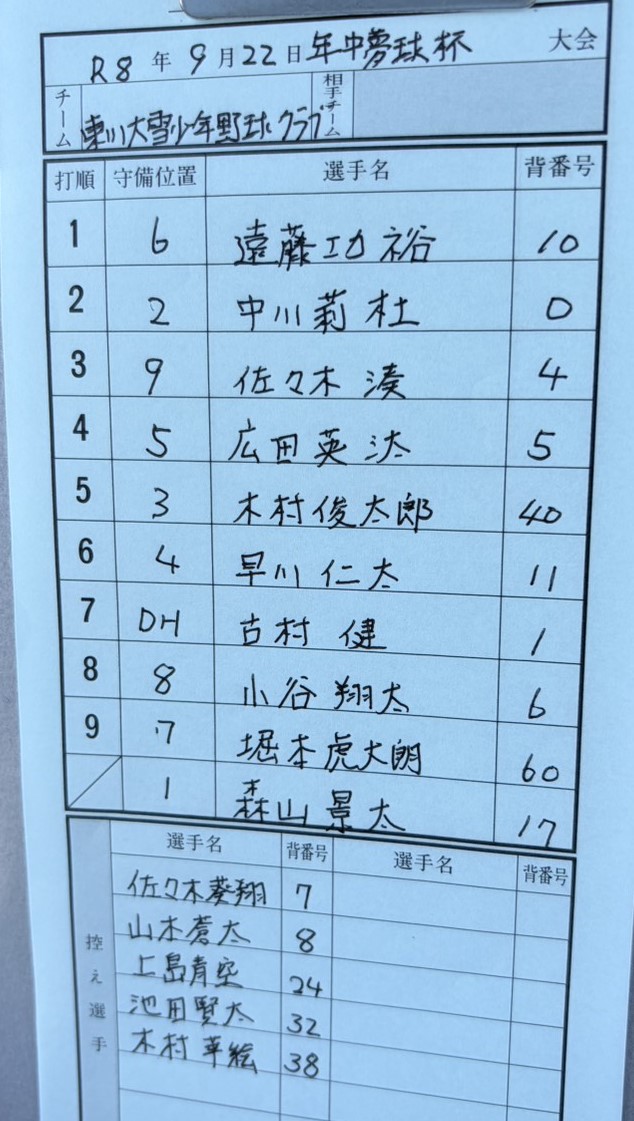 R8年9月22日年中夢球杯 大会
チーム 東川大雪少年野球クラブ 相手チーム
打順 守備位置 選手名 背番号
1 6 遠藤功裕 10
2 2 中川莉杜 0
3 9 佐々木湊 4
4 5 広田英汰 5
5 3 木村俊太郎 40
6 4 早川仁太 11
7 DH 古村健 1
8 8 小谷翔太 6
9 7 堀本虎太朗 60
1 森山景太 17
控え選手
選手名 背番号 選手名 背番号
佐々木葵翔 7
山本蒼太 8
上島青空 24
池田賢太 32
木村華絵 38